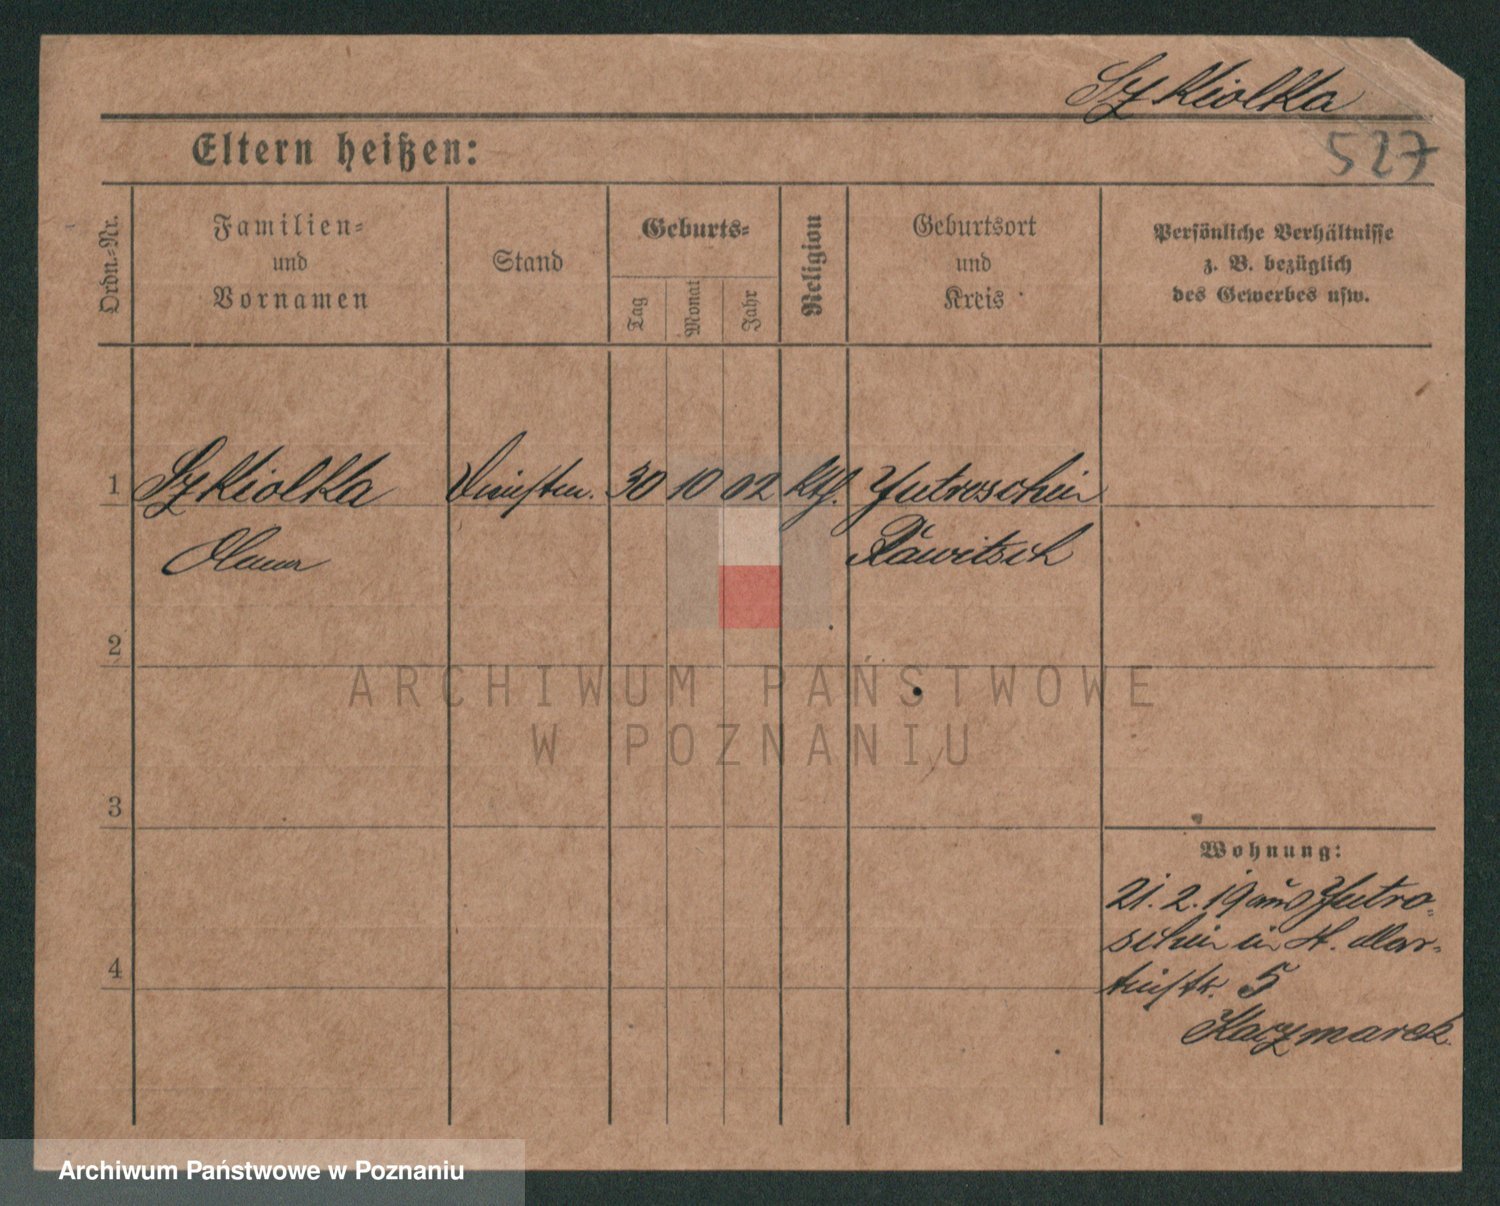 Szkiolka
527
Eltern heißen:
Ordn.-Nr.
Familien-
und
Vornamen
Stand
Geburts-
Tag
Monat
Jahr
Religion
Geburtsort
und
Kreis
Persönliche Verhältnisse
z. B. bezüglich
des Gewerbes usw.
1 Szkiolka 30 10 02 kth. Jutroschin
Rawitsch
2
3
4
Wohnung:
21. 2. 19 aus Jutro-
schin in H. Mar-
tinstr. 5
Kaczmarek
ARCHIWUM PAŃSTWOWE
W POZNANIU
Archiwum Państwowe w Poznaniu